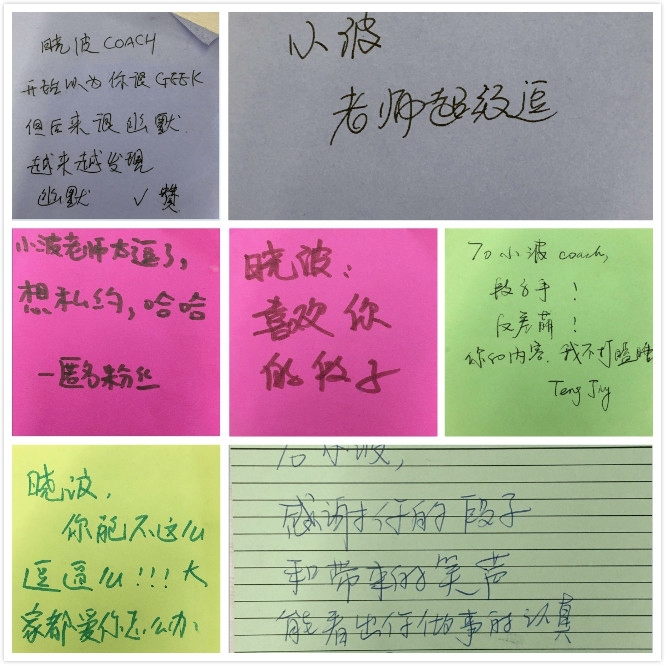 晓波 COACH
开始以为你很GEEK
但后来很幽默
越来越发现
幽默 ✓赞
小波
老师超级逗
小波老师太逗了,
想私约,哈哈
一匿名粉丝
晓波:
喜欢你
的段子
To 小波 coach,
段子手!
反差萌!
你的内容,我不打瞌睡
Teng Jay
晓波,
你能不这么
逗逼么!!!大
家都爱你怎么办?
To 小波,
感谢你的段子
和带来的笑声
能看出你做事的认真